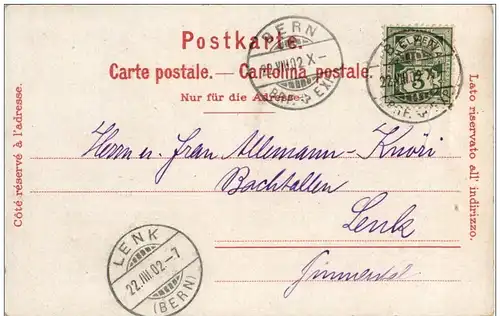 Postkarte.
Carte postale. — Cartolina postale.
Nur für die Adresse.
Côté réservé à l'adresse.
Lato riservato all' indirizzo.
BERN
22.VIII.02.X–
BRF. EXP.
BERN
22.VIII.02
5
Herrn u. Frau Allemann-Knöri
Bachtallen
Lenk
Simmental
LENK
22.VIII.02.–7
(BERN)